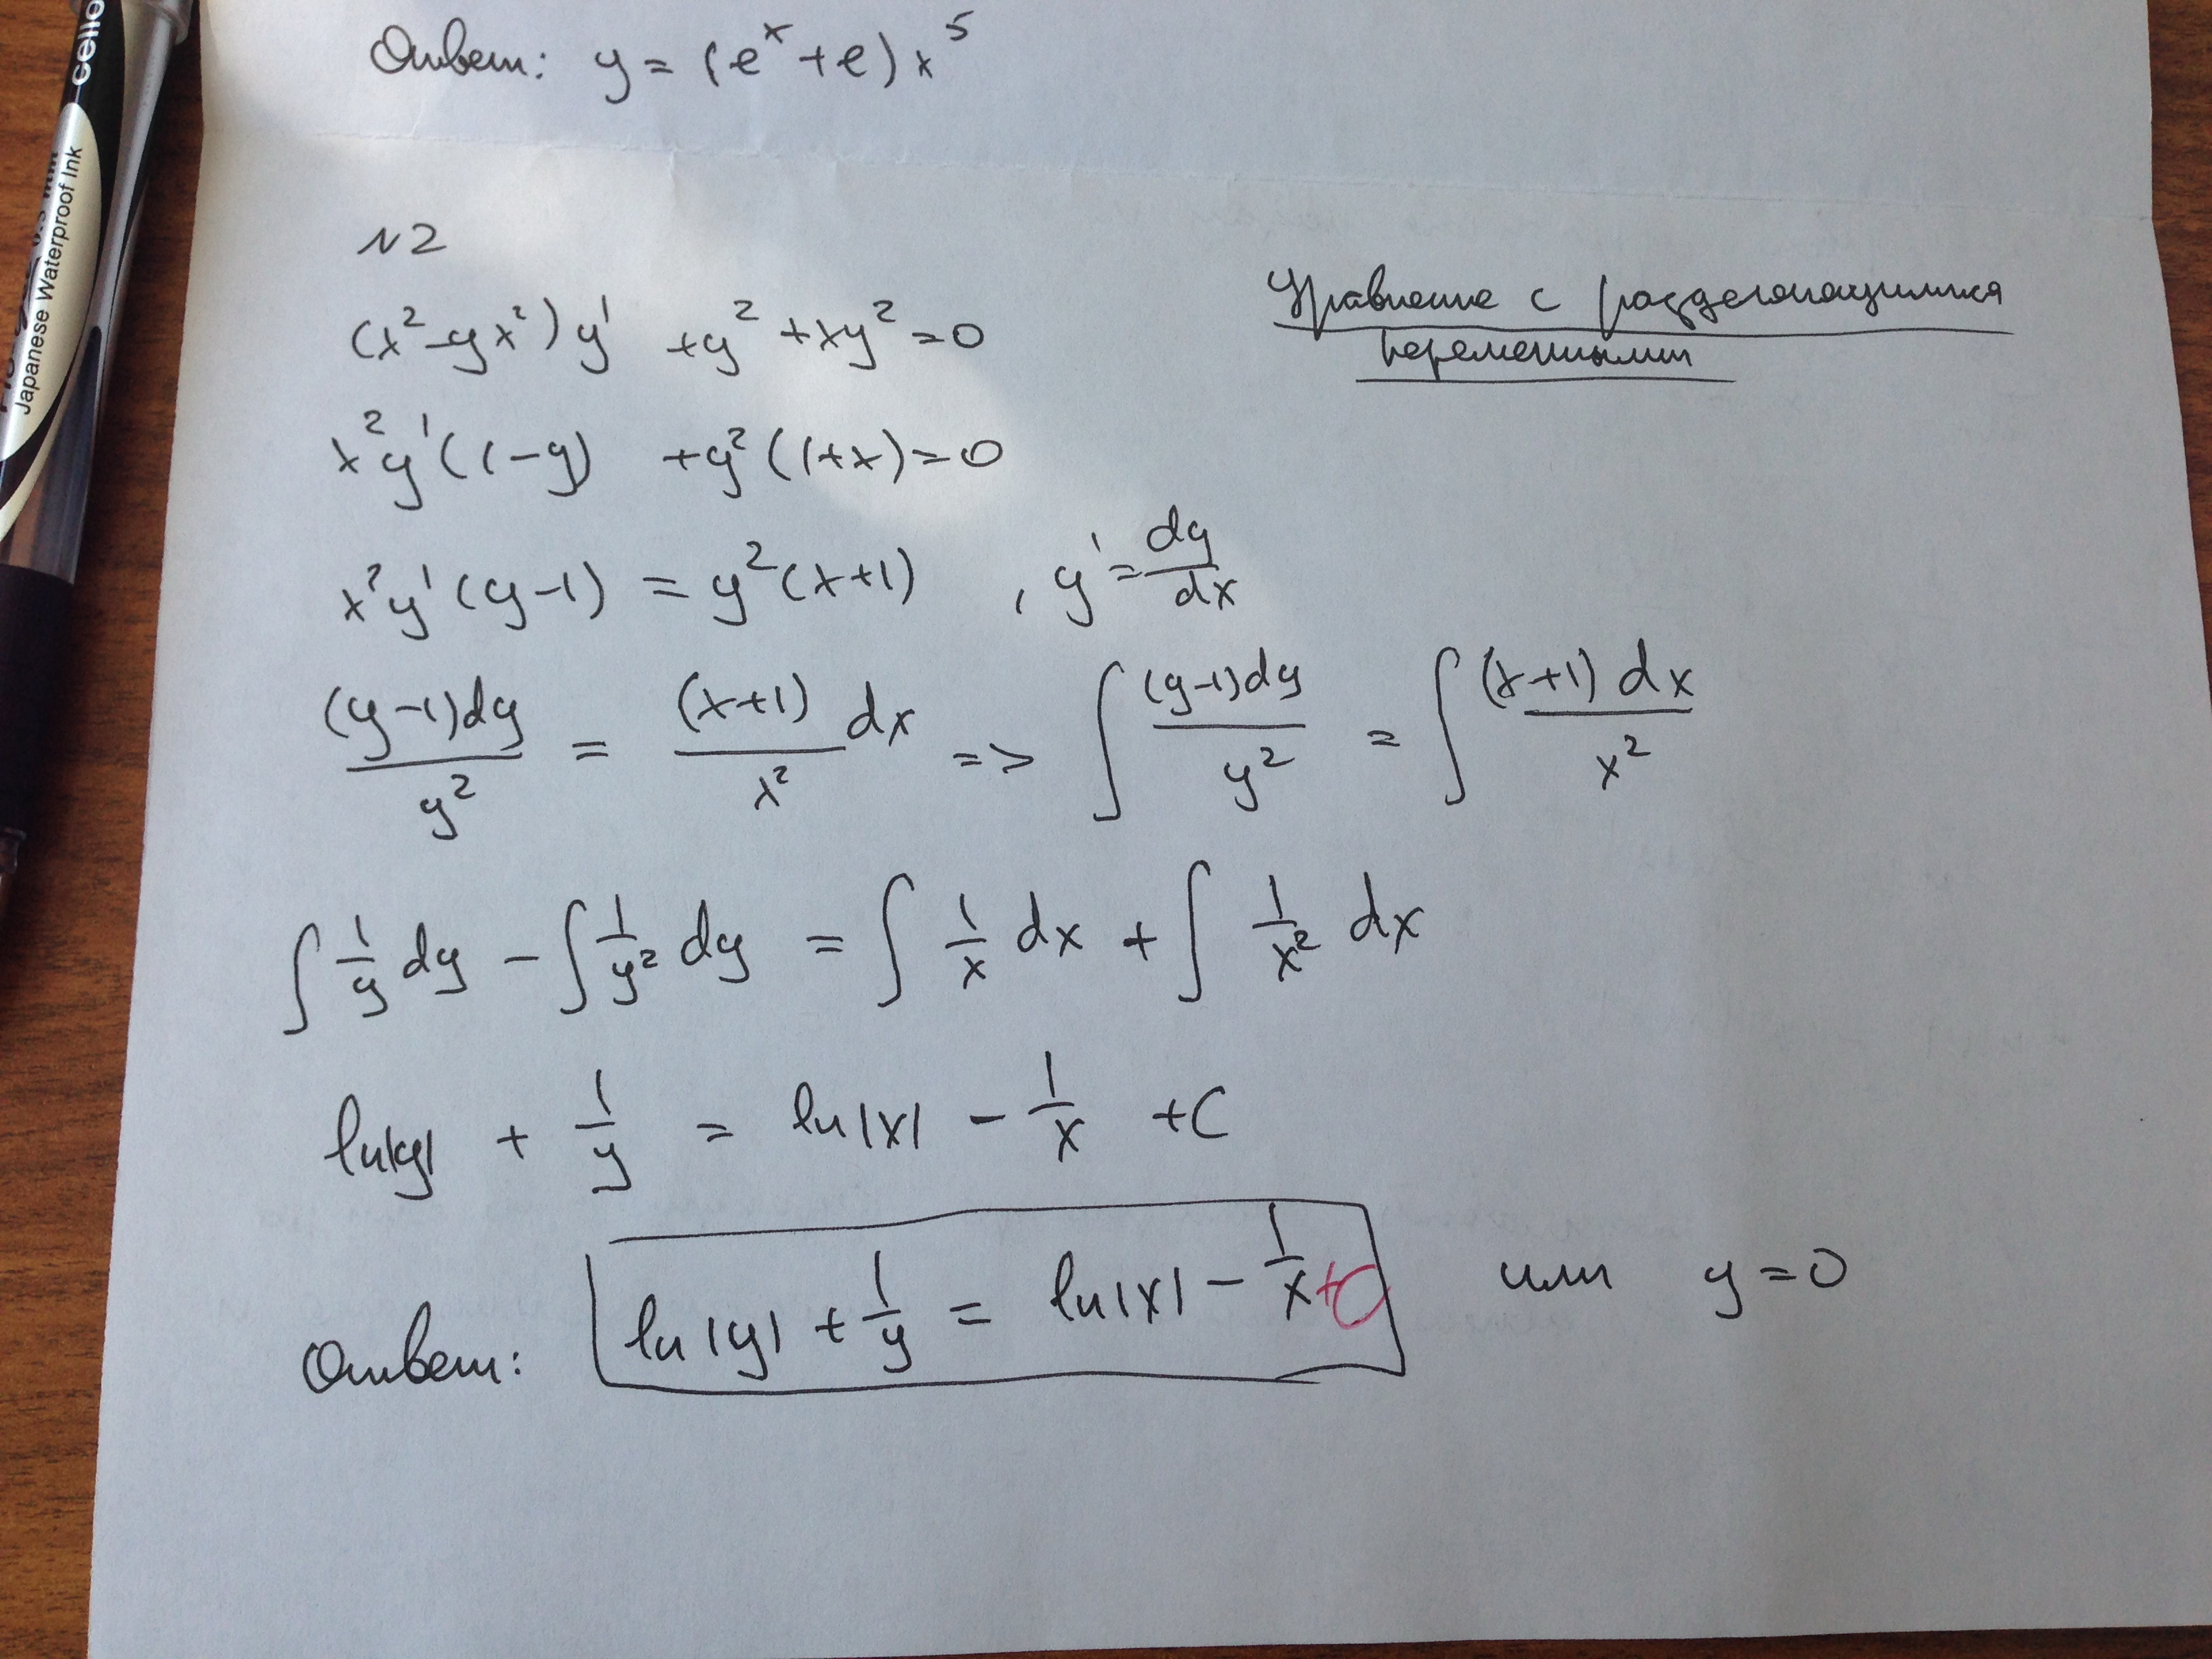 cello
Japanese Waterproof Ink
Ответ: y = (eˣ + e) x⁵
N2
Уравнение с разделяющимися
переменными
(x² - yx²) y' + y² + xy² = 0
x² y' (1 - y) + y² (1 + x) = 0
x² y' (y - 1) = y² (x + 1) , y' = dy/dx
(y - 1)dy/y² = (x + 1)/x² dx => ∫ (y - 1)dy/y² = ∫ (x + 1) dx/x²
∫ 1/y dy - ∫ 1/y² dy = ∫ 1/x dx + ∫ 1/x² dx
ln|y| + 1/y = ln|x| - 1/x + C
Ответ: ln|y| + 1/y = ln|x| - 1/x + C или y = 0